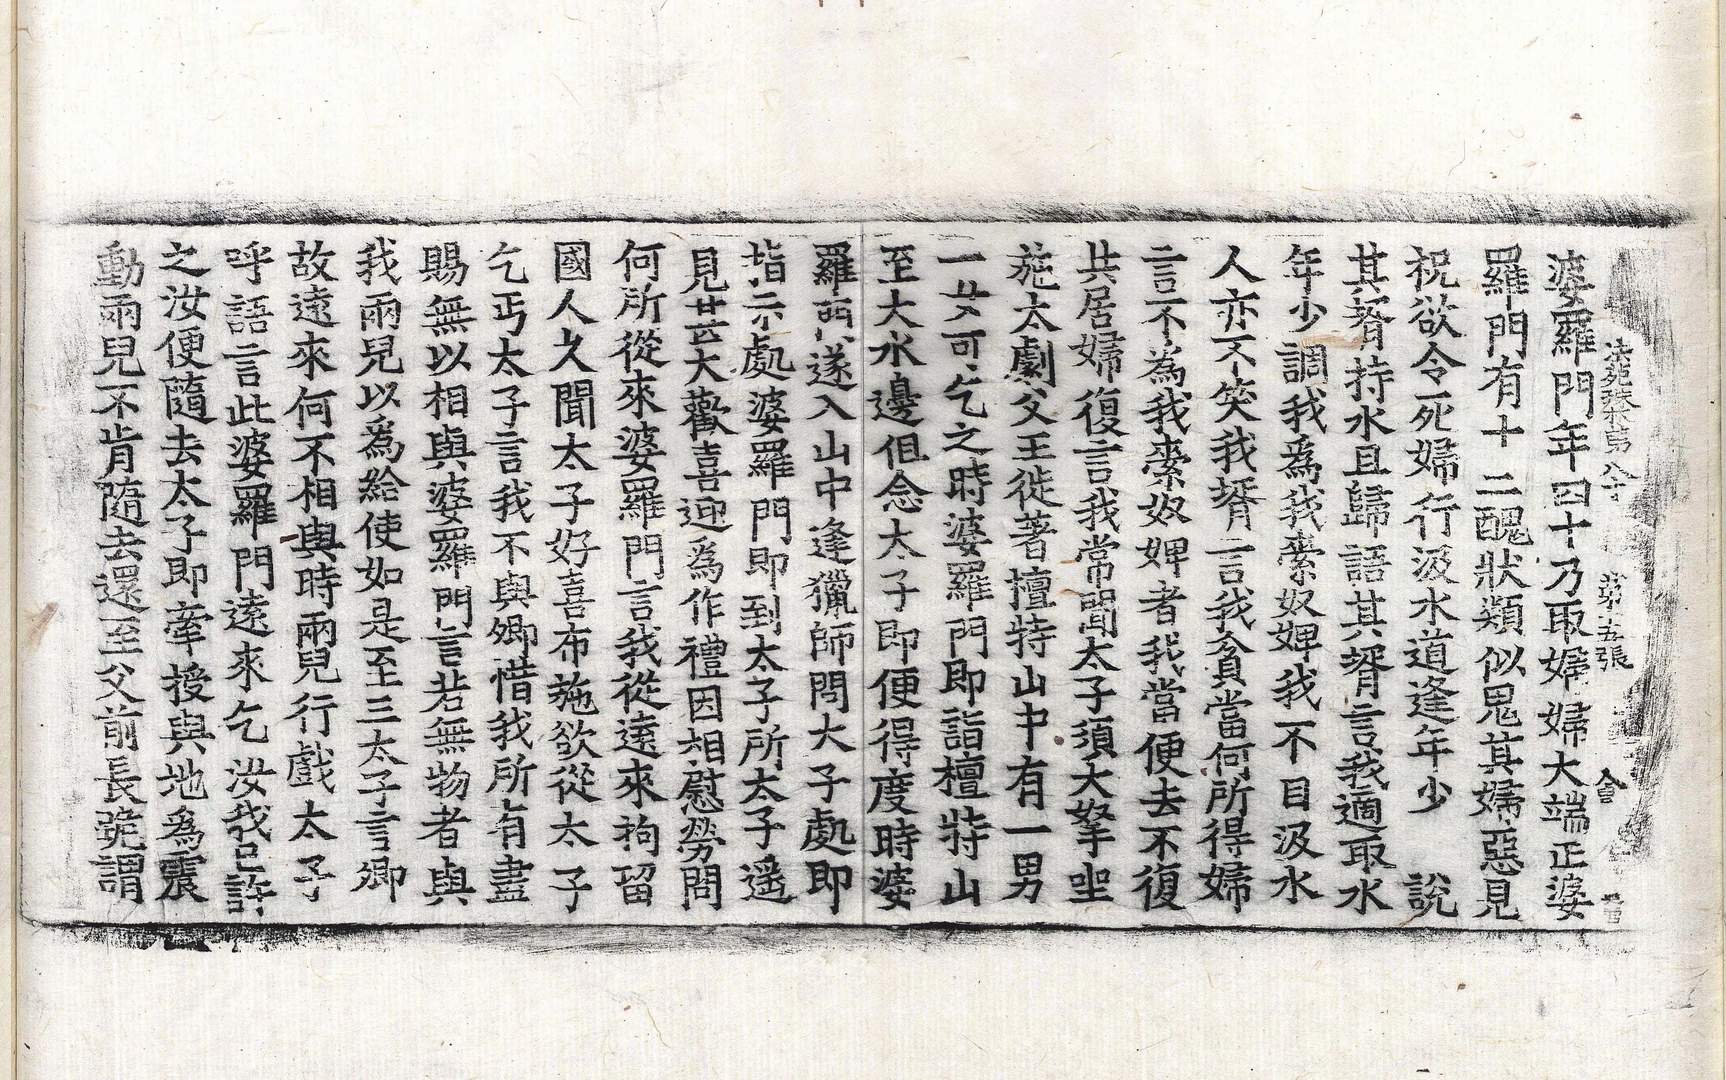 法苑珠林第八十 第五張 會
婆羅門年四十乃取婦婦大端正婆
羅門有十二醜狀類似鬼其婦惡見
祝欲令死婦行汲水道逢年少 說
其壻持水且歸語其壻言我適取水
年少調我爲我索奴婢我不目汲水
人亦不笑我壻言我貧當何所得婦
言不為我索奴婢者我當便去不復
共居婦復言我常聞太子須大拏坐
施太劇父王徙著檀特山中有一男
一女可乞之時婆羅門即詣檀特山
至大水邊但念太子即便得度時婆
羅門遂入山中逢獵師問太子處即
指示處婆羅門即到太子所太子遥
見甚大歡喜迎爲作禮因相慰勞問
何所從來婆羅門言我從遠來拘留
國人久聞太子好喜布施欲從太子
乞丐太子言我不與卿惜我所有盡
賜無以相與婆羅門言若無物者與
我兩兒以爲給使如是至三太子言卿
故遠來何不相與時兩兒行戲太子
呼語言此婆羅門遠來乞汝我已許
之汝便隨去太子即牽授與地爲震
動兩兒不肯隨去還至父前長跪謂